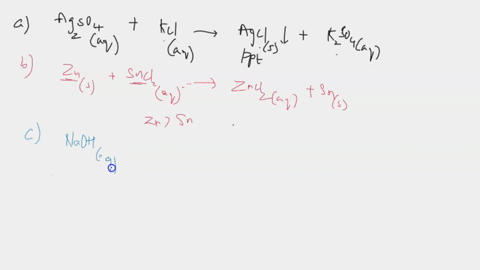 a) Ag2SO4(aq) + KCl(aq) → AgCl(s)↓ + K2SO4(aq)
ppt
b) Zn(s) + SnCl2(aq) → ZnCl2(aq) + Sn(s)
Zn > Sn
c) NaOH(aq)